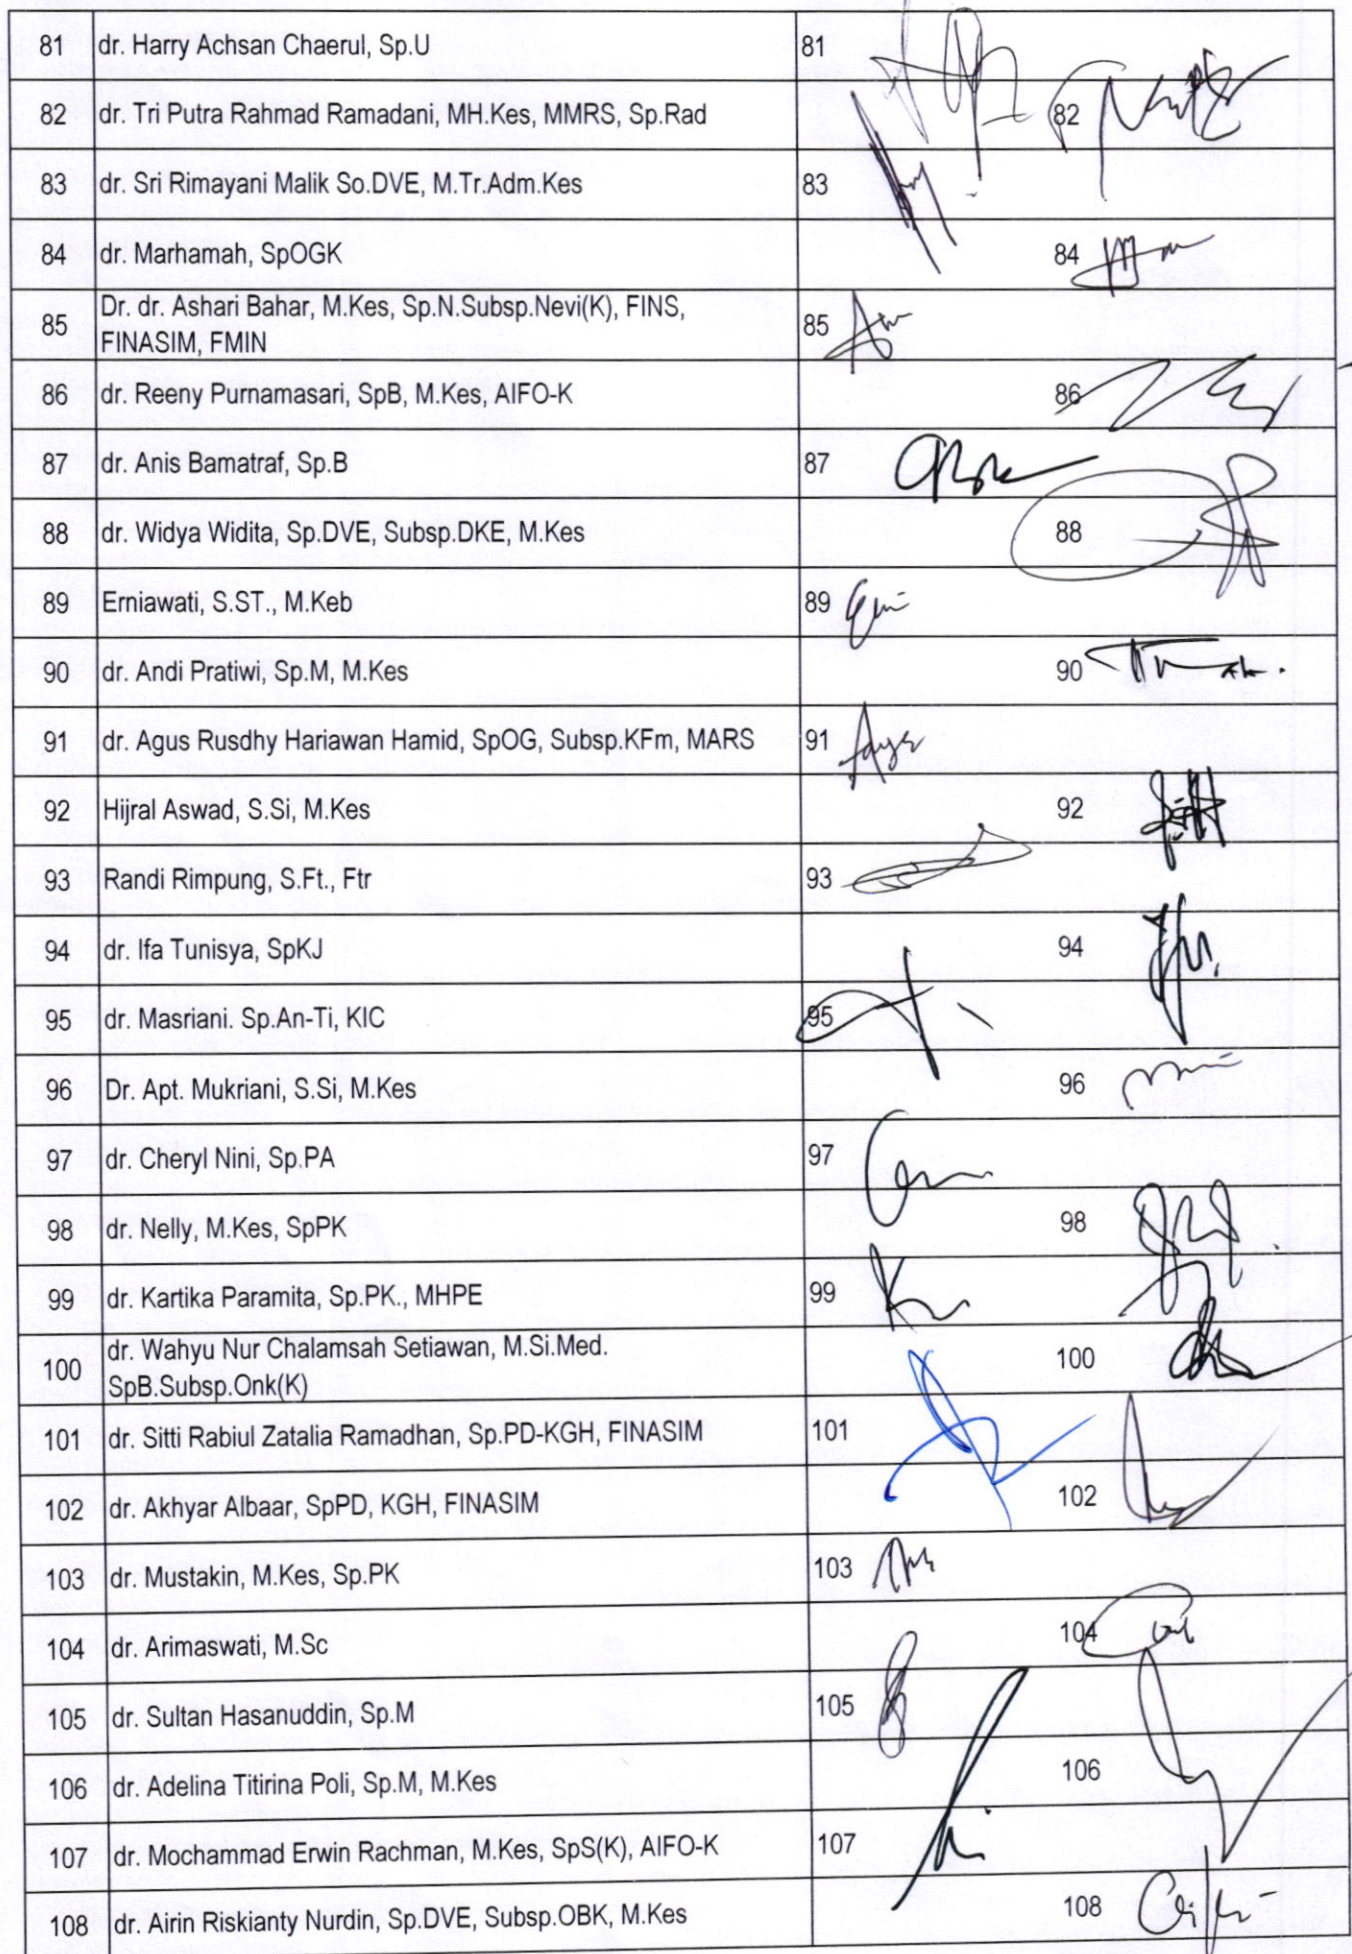 81 dr. Harry Achsan Chaerul, Sp.U 81
82 dr. Tri Putra Rahmad Ramadani, MH.Kes, MMRS, Sp.Rad 82
83 dr. Sri Rimayani Malik So.DVE, M.Tr.Adm.Kes 83
84 dr. Marhamah, SpOGK 84
85 Dr. dr. Ashari Bahar, M.Kes, Sp.N.Subsp.Nevi(K), FINS,
FINASIM, FMIN 85
86 dr. Reeny Purnamasari, SpB, M.Kes, AIFO-K 86
87 dr. Anis Bamatraf, Sp.B 87
88 dr. Widya Widita, Sp.DVE, Subsp.DKE, M.Kes 88
89 Erniawati, S.ST., M.Keb 89
90 dr. Andi Pratiwi, Sp.M, M.Kes 90
91 dr. Agus Rusdhy Hariawan Hamid, SpOG, Subsp.KFm, MARS 91
92 Hijral Aswad, S.Si, M.Kes 92
93 Randi Rimpung, S.Ft., Ftr 93
94 dr. Ifa Tunisya, SpKJ 94
95 dr. Masriani. Sp.An-Ti, KIC 95
96 Dr. Apt. Mukriani, S.Si, M.Kes 96
97 dr. Cheryl Nini, Sp.PA 97
98 dr. Nelly, M.Kes, SpPK 98
99 dr. Kartika Paramita, Sp.PK., MHPE 99
100 dr. Wahyu Nur Chalamsah Setiawan, M.Si.Med.
SpB.Subsp.Onk(K) 100
101 dr. Sitti Rabiul Zatalia Ramadhan, Sp.PD-KGH, FINASIM 101
102 dr. Akhyar Albaar, SpPD, KGH, FINASIM 102
103 dr. Mustakin, M.Kes, Sp.PK 103
104 dr. Arimaswati, M.Sc 104
105 dr. Sultan Hasanuddin, Sp.M 105
106 dr. Adelina Titirina Poli, Sp.M, M.Kes 106
107 dr. Mochammad Erwin Rachman, M.Kes, SpS(K), AIFO-K 107
108 dr. Airin Riskianty Nurdin, Sp.DVE, Subsp.OBK, M.Kes 108